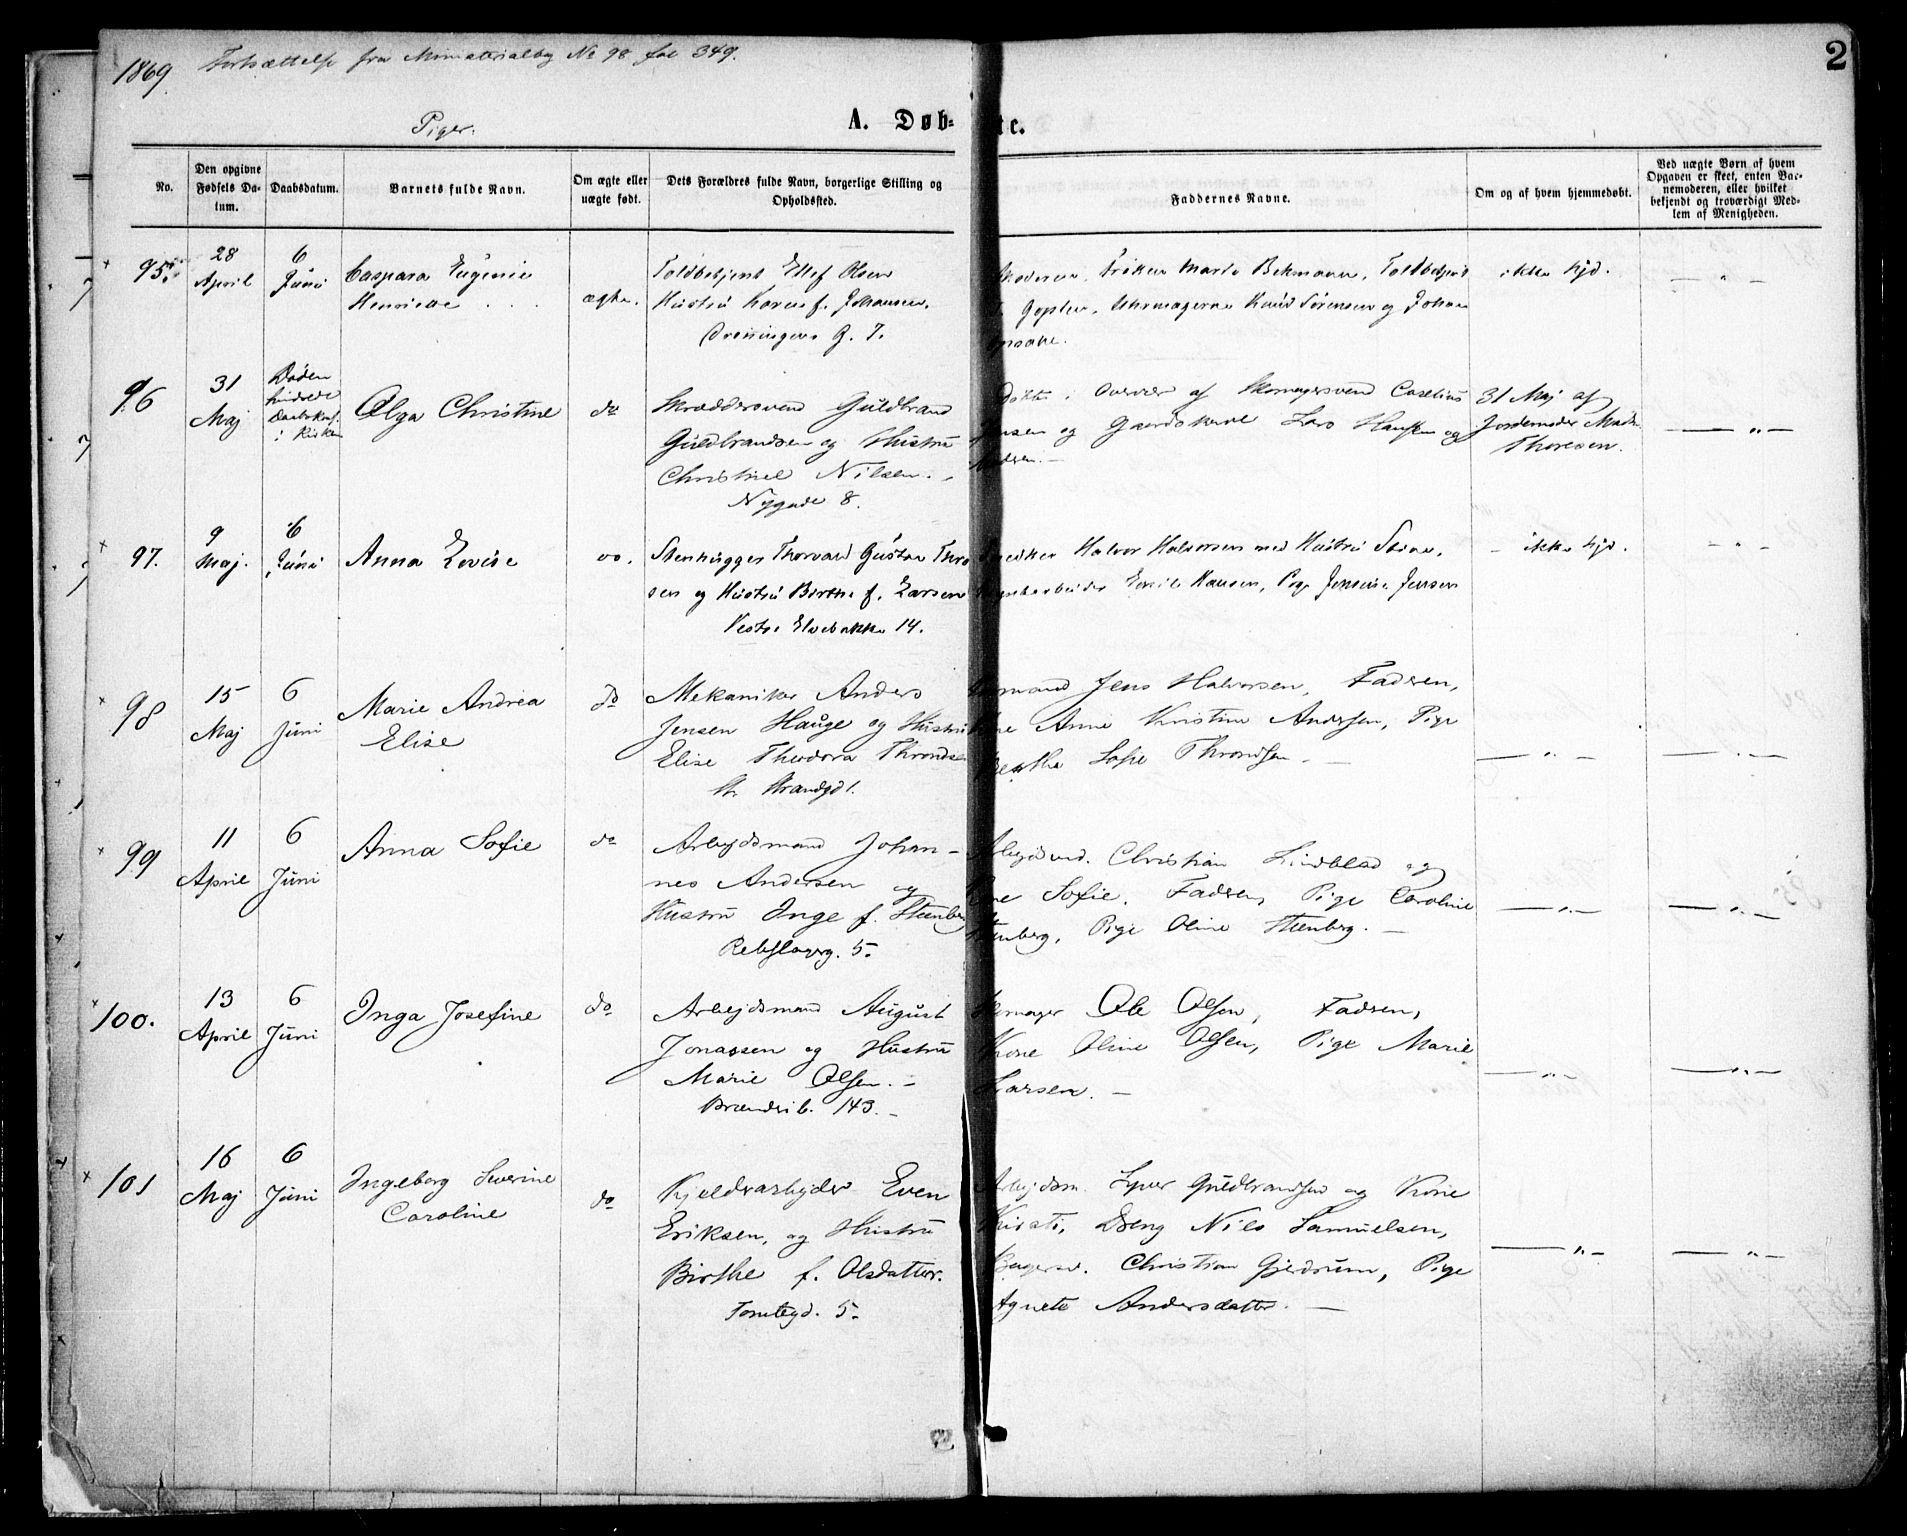 1869 Fortsættelse fra Ministerialbog No 98 fol 349.
2
Piger.
A. Døb- te.
No.
Den opgivne Fødsels Da-tum.
Daabsdatum.
Barnets fulde Navn.
Om ægte eller uægte født.
Dets Forældres fulde Navn, borgerlige Stilling og Opholdssted.
Faddernes Navne.
Om og af hvem hjemmedøbt.
Ved uægte Børn af hvem Opgaven er skeet, enten Bar-nemoderen, eller hvilket bekjendt og troværdigt Med-lem af Menigheden.
95. 28 April 6 Juni Caspara Eugenie Henriette ægte.
Toldbetjent Ellef Olsen
Hustru Karen f. Johansen.
Dronningens G. 7.
Moderen, Frøken Marie Bekmann, Toldbetjent
Urmagerne Knud Sørensen og Johan
ikke hjd.
96 31 Maj Døden hindrede i Kirken
Olga Christine do
Skræddersvend Guldbrand
Guldbrandsen og Hustru
Christine Nilsen.
Nygade 8.
Døbt i Overvær af Skomagersvend
og Gaardskarl Lars Hansen og
31 Maj af
Jordemoder Mad.
Thoresen.
97. 9 Maj. 6 Juni Anna Lovise do.
Stenhugger Thorvald Gustav
sen og Hustru Birthe f. Larsen
Vestre Elvebakke 14.
Halvor Halvorsen med Hustru
Emil Hansen, Pige Jensine Jensen
- ikke hjd.
98 15 Maj 6 Juni Marie Andrea Elise do
Mekaniker Anders
Jensen Hauge og Hustru
Elise Theodora Throndsen
St. Strandgd 1.
Jens Halvorsen, Faderen,
Kone Anne Kristine Andersen, Pige
Berthe Sofie Throndsen. -
99 11 April 6 Juni Anna Sofie do
Arbejdsmand Johan-
nes Andersen og
Hustru Inge f. Steenberg
Rebslagerg. 5.
Arbejdsmd. Christian Lindblad og
Kone Sofie, Faderen, Pige Caroline
Steenberg, Pige Oline Steenberg. -
100. 13 April 6 Juni Inga Josefine do
Arbejdsmand August
Jonassen og Hustru
Marie Olsen. -
143. -
Skomager Ole Olsen, Faderen,
Kone Oline Olsen, Pige Marie
Larsen. -
101 16 Maj 6 Juni Ingeborg Severine Caroline do
Kjeldrarbejder Even
Eriksen, og Hustru
Birthe f. Olsdatter.
Tomtegd. 5.
Arbejdsm. Iver Guldbrandsen og Kone
Kirsti, Dreng Nils Samuelsen,
Christian Gjerdrum, Pige
Agnete Andersdatter. -